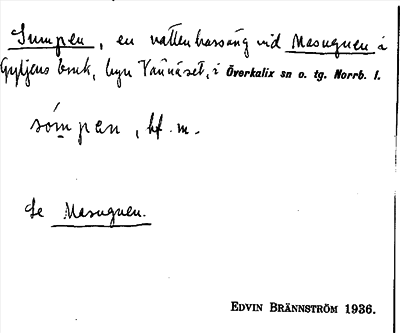 Sumpen, en vattenbassäng vid Masugnen å
Gyljens bruk, byn Vännäset, i Överkalix sn o. tg. Norrb. l.
sómpən, bf. m.
Se Masugnen.
EDVIN BRÄNNSTRÖM 1936.